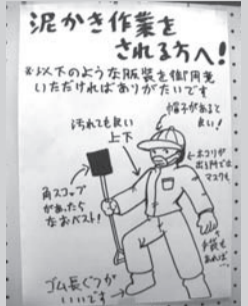 泥かき作業を
される方へ!
※以下のような服装を御用意
いただければありがたいです
帽子があると
良い!
汚れても良い
上下
ホコリが
出る所では
マスクも
角スコップ
があったら
なおベスト!
手袋も
あれば…
ゴム長ぐつが
いいです